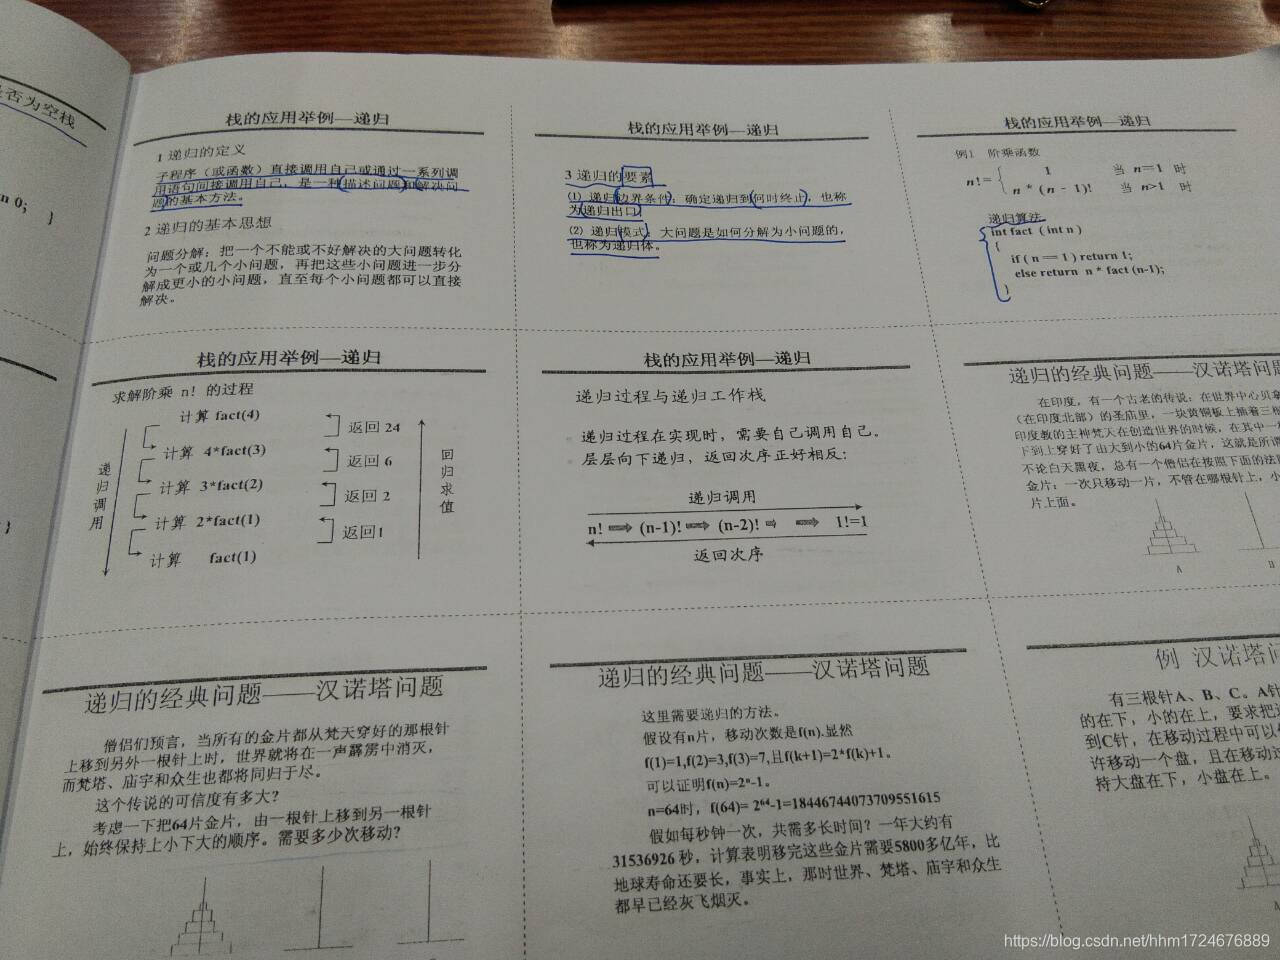 是否为空栈
n 0; }
}
栈的应用举例—递归
1 递归的定义
子程序（或函数）直接调用自己或通过一系列调
用语句间接调用自己，是一种描述问题和解决问
题的基本方法。
2 递归的基本思想
问题分解：把一个不能或不好解决的大问题转化
为一个或几个小问题，再把这些小问题进一步分
解成更小的小问题，直至每个小问题都可以直接
解决。
栈的应用举例—递归
3 递归的要素
⑴ 递归边界条件：确定递归到何时终止，也称
为递归出口；
⑵ 递归模式：大问题是如何分解为小问题的，
也称为递归体。
栈的应用举例—递归
例1 阶乘函数
n!= { 1 当 n=1 时
n * (n - 1)! 当 n>1 时
递归算法
int fact ( int n )
{
if ( n == 1 ) return 1;
else return n * fact (n-1);
}
栈的应用举例—递归
求解阶乘 n! 的过程
计算 fact(4)
计算 4*fact(3)
计算 3*fact(2)
计算 2*fact(1)
计算 fact(1)
递归调用
返回 24
返回 6
返回 2
返回1
回归求值
栈的应用举例—递归
递归过程与递归工作栈
递归过程在实现时，需要自己调用自己。
层层向下递归，返回次序正好相反：
递归调用
n! ⇒ (n-1)! ⇒ (n-2)! ⇒ ⇒ 1!=1
返回次序
递归的经典问题——汉诺塔问题
在印度，有一个古老的传说：在世界中心贝拿
（在印度北部）的圣庙里，一块黄铜板上插着三根
印度教的主神梵天在创造世界的时候，在其中一根
下到上穿好了由大到小的64片金片，这就是所谓
不论白天黑夜，总有一个僧侣在按照下面的法则
金片：一次只移动一片，不管在哪根针上，小
片上面。
A B
递归的经典问题——汉诺塔问题
僧侣们预言，当所有的金片都从梵天穿好的那根针
上移到另外一根针上时，世界就将在一声霹雳中消灭，
而梵塔、庙宇和众生也都将同归于尽。
这个传说的可信度有多大？
考虑一下把64片金片，由一根针上移到另一根针
上，始终保持上小下大的顺序。需要多少次移动？
递归的经典问题——汉诺塔问题
这里需要递归的方法。
假设有n片，移动次数是f(n).显然
f(1)=1,f(2)=3,f(3)=7,且f(k+1)=2*f(k)+1。
可以证明f(n)=2ⁿ-1。
n=64时，f(64)= 2⁶⁴-1=18446744073709551615
假如每秒钟一次，共需多长时间？一年大约有
31536926 秒，计算表明移完这些金片需要5800多亿年，比
地球寿命还要长，事实上，那时世界、梵塔、庙宇和众生
都早已经灰飞烟灭。
例 汉诺塔问
有三根针A、B、C。A针
的在下，小的在上，要求把这
到C针，在移动过程中可以
许移动一个盘，且在移动过
持大盘在下，小盘在上。
A
https://blog.csdn.net/hhm1724676889